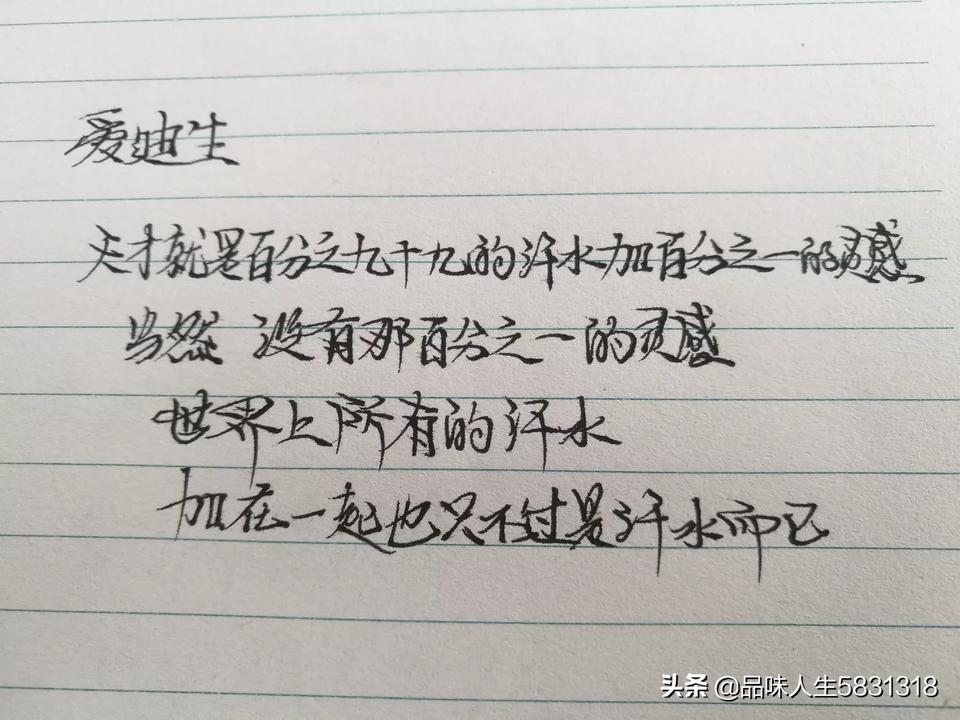 爱迪生
天才就是百分之九十九的汗水加百分之一的灵感
当然 没有那百分之一的灵感
世界上所有的汗水
加在一起也只不过是汗水而已
头条 @品味人生5831318